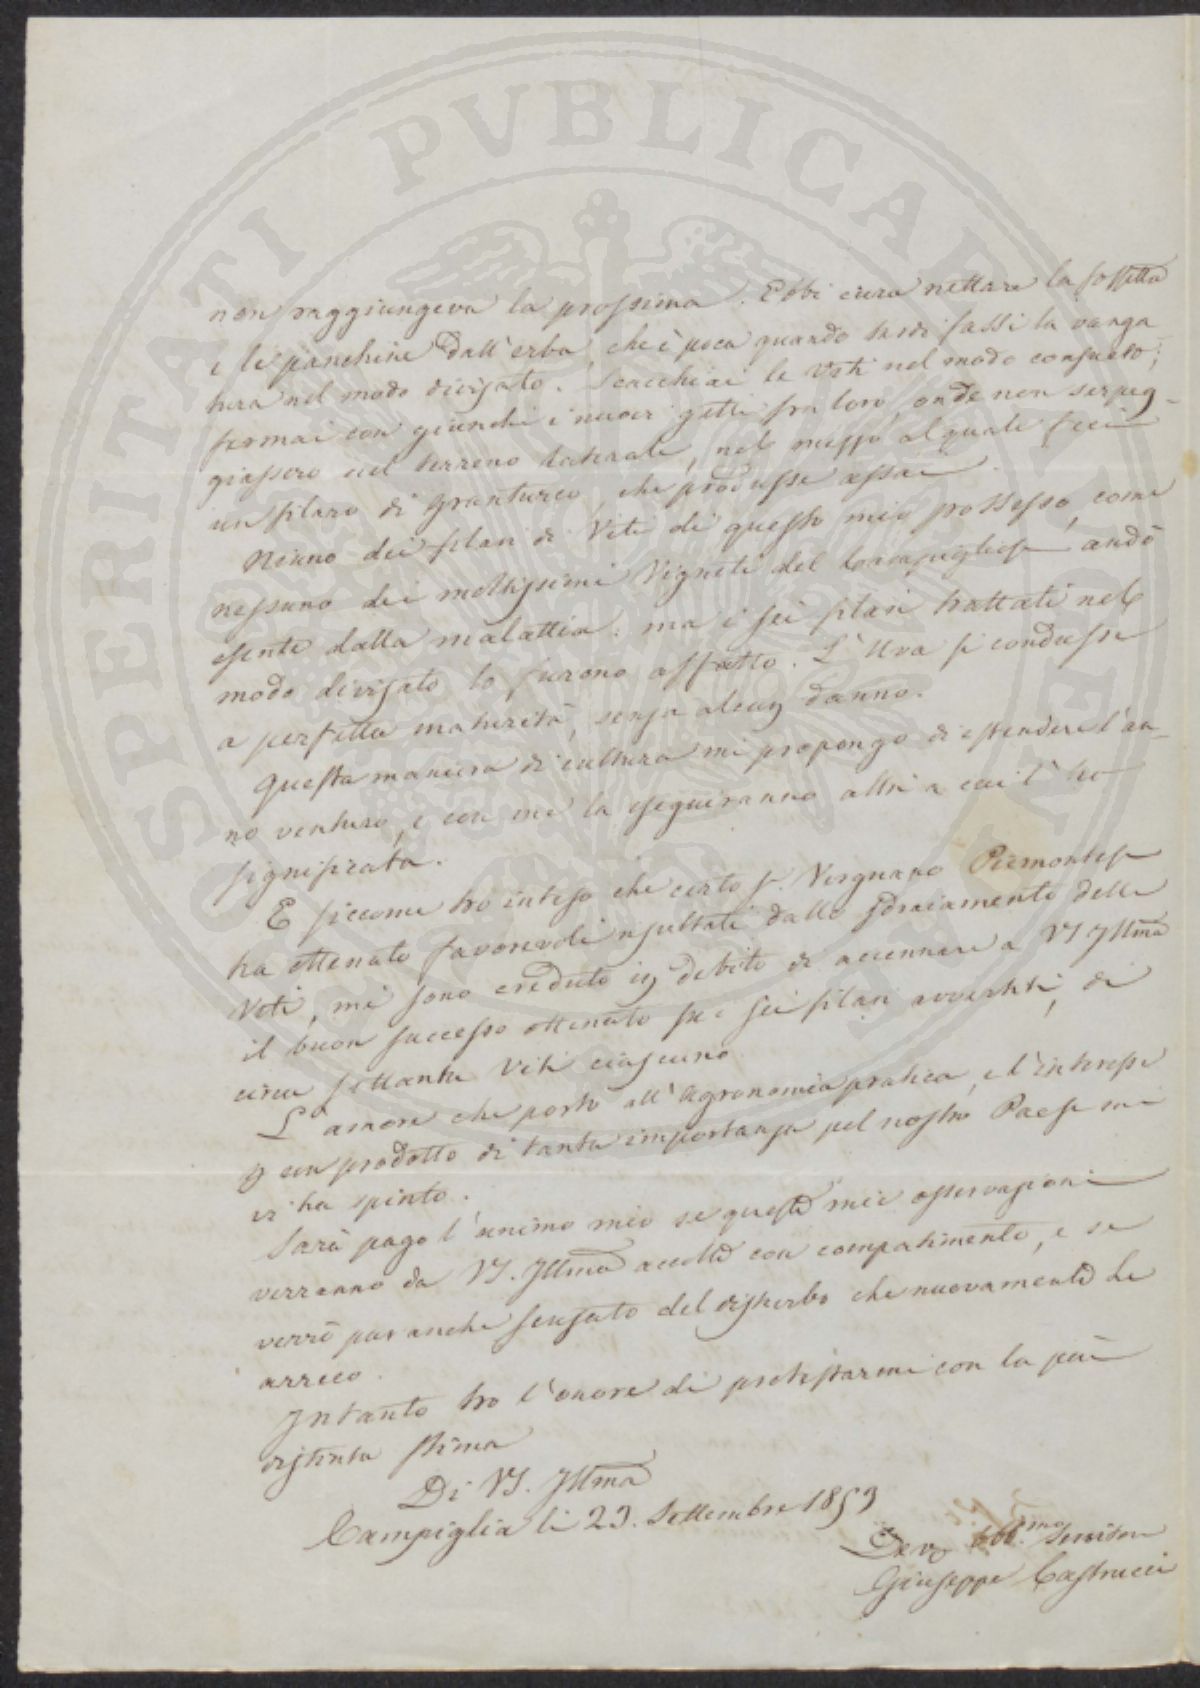 PROSPERITATI PVBLICAE AVGENDAE
non raggiungeva la prossima. Ebbi cura nettare la fossetta
e le panchine dall'erba, che è poca quando tardi fassi la vanga
tura nel modo divisato. Scacchiai le Viti nel modo consueto;
fermai con giunchi i nuovi getti fra loro, onde non serpeg-
giassero nel terreno laterale, nel mezzo al quale feci
un filare di granturco, che produsse assai.
Niuno dei filari di Viti di questo mio possesso, come
nessuno dei moltissimi Vigneti del Campigliese andò
esente dalla malattia: ma i sei filari trattati nel
modo divisato lo furono affatto. L'Uva si condusse
a perfetta maturità, senza alcun danno.
Questa maniera di cultura mi propongo di estendere l'an-
no venturo, e con me la eseguiranno altri a cui l'ho
significata.
E siccome ho inteso che certo S. Vergnano Piemontese
ha ottenuto favorevoli risultati dallo sdraiamento delle
Viti, mi sono creduto in debito di accennare a VS Illma
il buon successo ottenuto su i sei filari avvertiti, di
circa settanta Viti ciascuno.
L'amore che porto all'Agronomia pratica, e l'interesse
p un prodotto di tanta importanza pel nostro Paese mi
vi ha spinto.
Sarà pago l'animo mio se queste mie osservazioni
verranno da VS. Illma accolte con compatimento, e se
verrò pur anche scusato del disturbo che nuovamente le
arreco.
Intanto ho l'onore di protestarmi con la più
distinta stima
Di VS. Illma
Campiglia li 23. Settembre 1853
Devo obb.mo Servitore
Giuseppe Castrucci